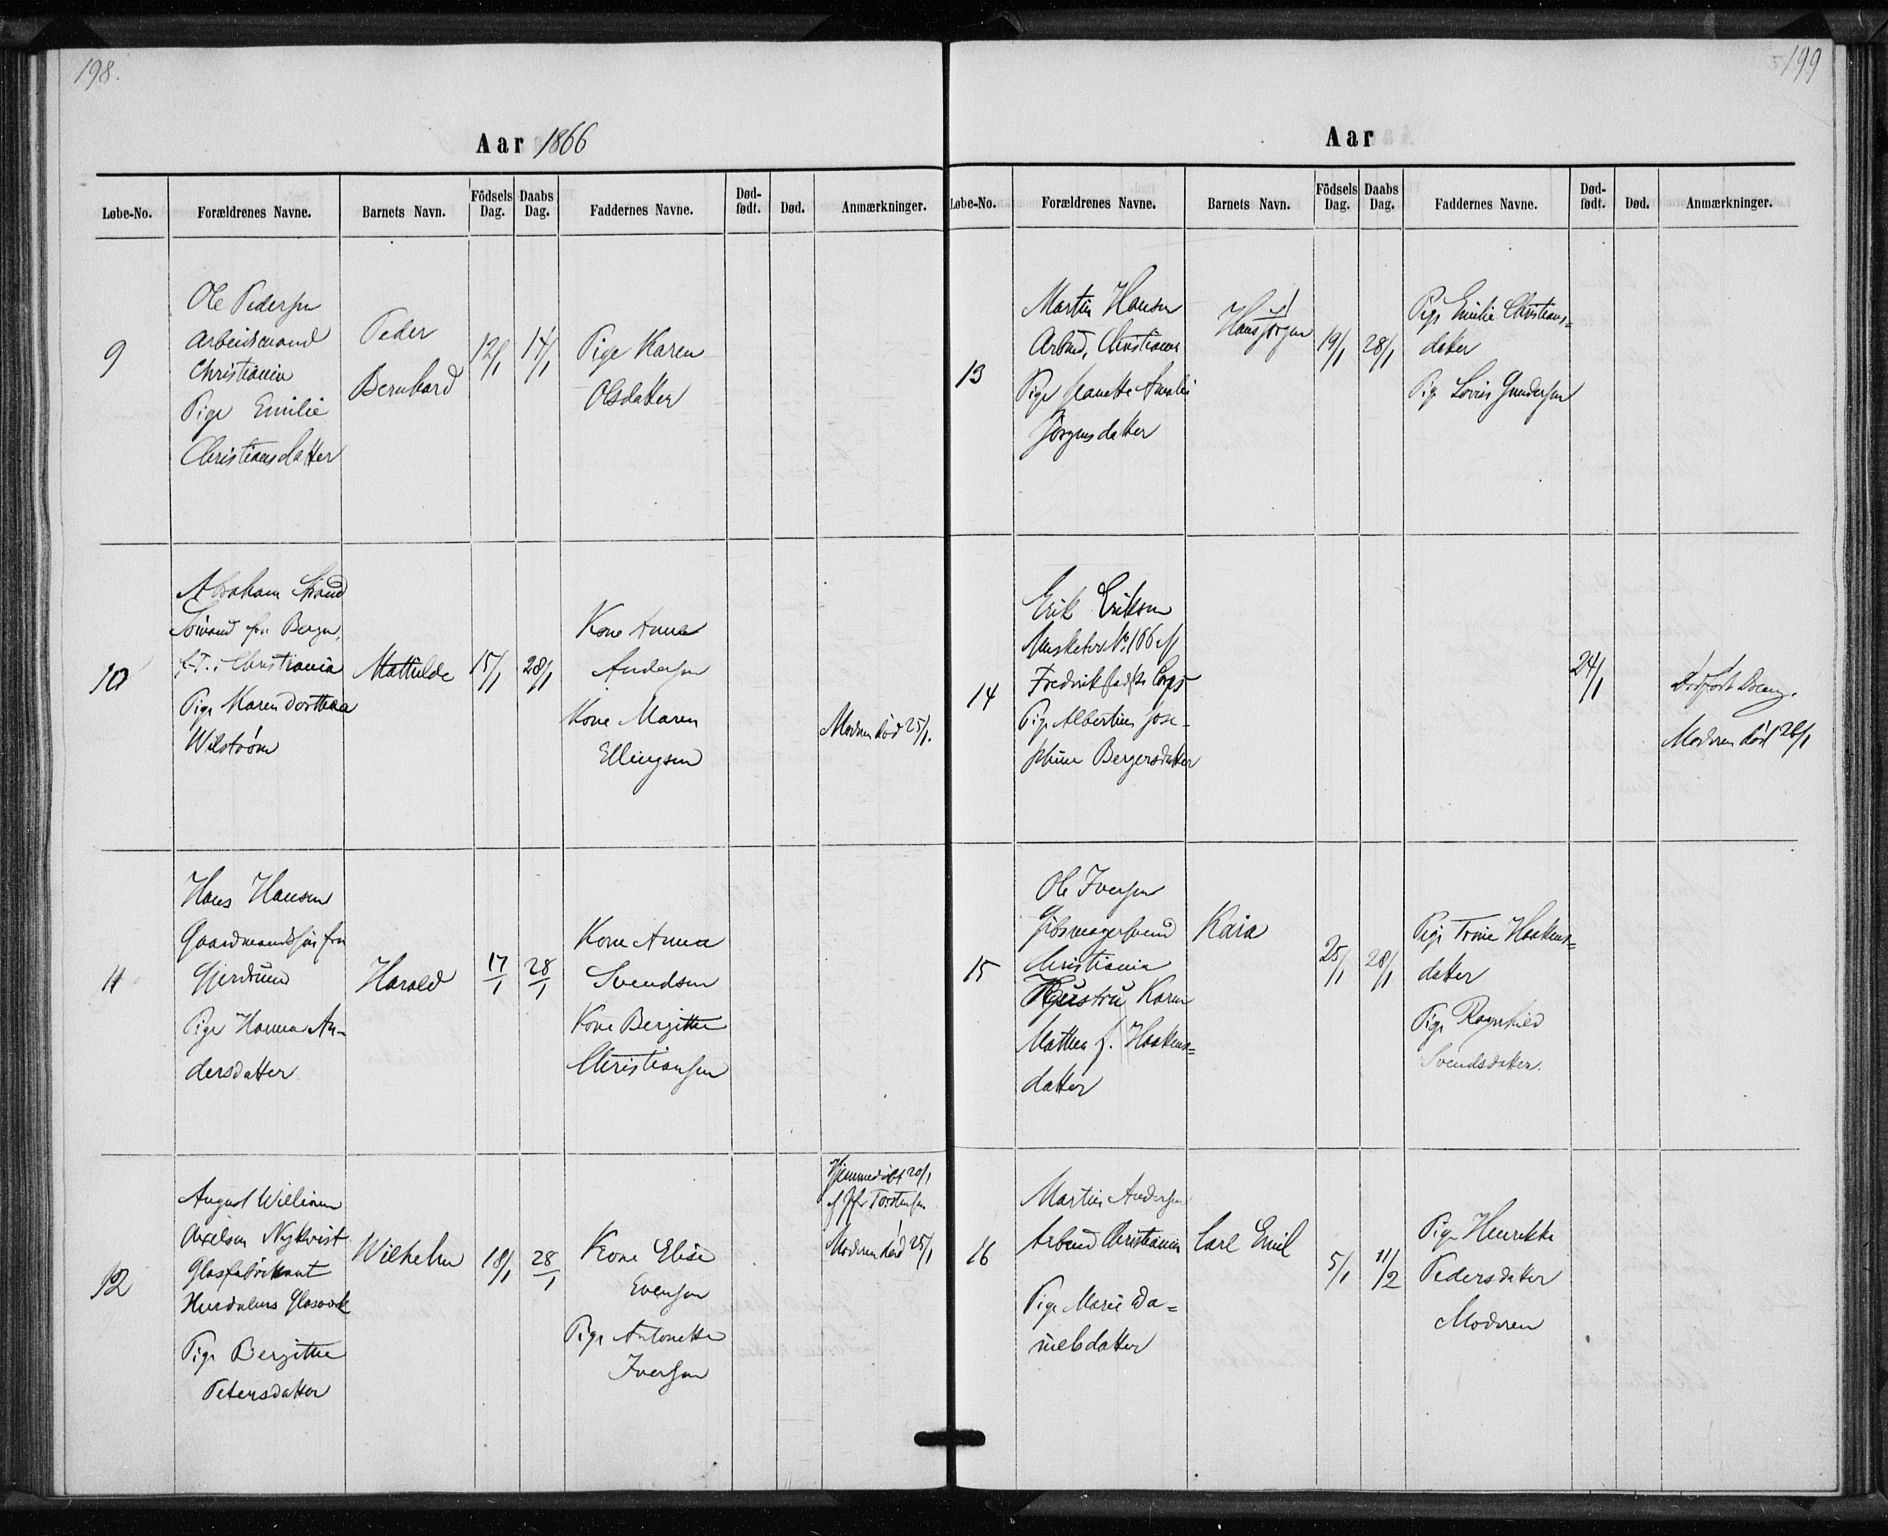 198.
Aar 1866
Løbe-No. Forældrenes Navne. Barnets Navn. Födsels Dag. Daabs Dag. Faddernes Navne. Død-født. Død. Anmærkninger.
9
Ole Pedersen
Arbeidsmand
Christiania
Pige Emilie
Christiansdatter
Peder
Bernhard
12/1
14/1
Pige Karen
Olsdatter
10
Abraham Strand
Sömand fra Bergen,
f.T. i Christiania
Pige Maren Dorthea
Wilstrøm
Mathilde
15/1
28/1
Kone Anne
Andersen
Kone Maren
Ellingsen
Moderen död 25/1.
11
Hans Hansen
Gaardmandssøn fra
Gjerdrum
Pige Hanna An-
dersdatter
Harald
17/1
28/1
Kone Anna
Svendsen
Kone Bergitte
Christiansen
12
August William
Axelson Nykvist
Glasfabrikant
Hurdalens Glasværk
Pige Bergitte
Petersdatter
Wilhelm
18/1
28/1
Kone Elise
Evensen
Pige Antonette
Iversen
Hjemmedöbt 20/1
af Jfr Torstensen
Moderen död 25/1
199
Aar
Løbe-No. Forældrenes Navne. Barnets Navn. Födsels Dag. Daabs Dag. Faddernes Navne. Død-født. Død. Anmærkninger.
13
Martin Hansen
Arbmd, Christiania
Pige Jeanette Amalie
Jörgensdatter
Hans Jörgen
19/1
28/1
Pige Emilie Christians=
datter
Pige Lovise Gundersen
14
Erik Erikson
Musketer No 166 af
Fredrikstadske Corps
Pige Albertine Jose-
phine Bergersdatter
24/1
Dödfödt Dreng.
Moderen död 26/1
15
Ole Iversen
Gjösmagersvend
Christiania
Hustru Karen
Mathea f. Haakens=
datter
Kaia
25/1
28/1
Pige Trine Haakens=
datter
Pige Ragnhild
Svendsdatter.
16
Martin Andersen
Arbmd Christiania
Pige Marie Da=
nielsdatter
Carl Emil
5/1
11/2
Pige Henrikke
Pedersdatter
Moderen